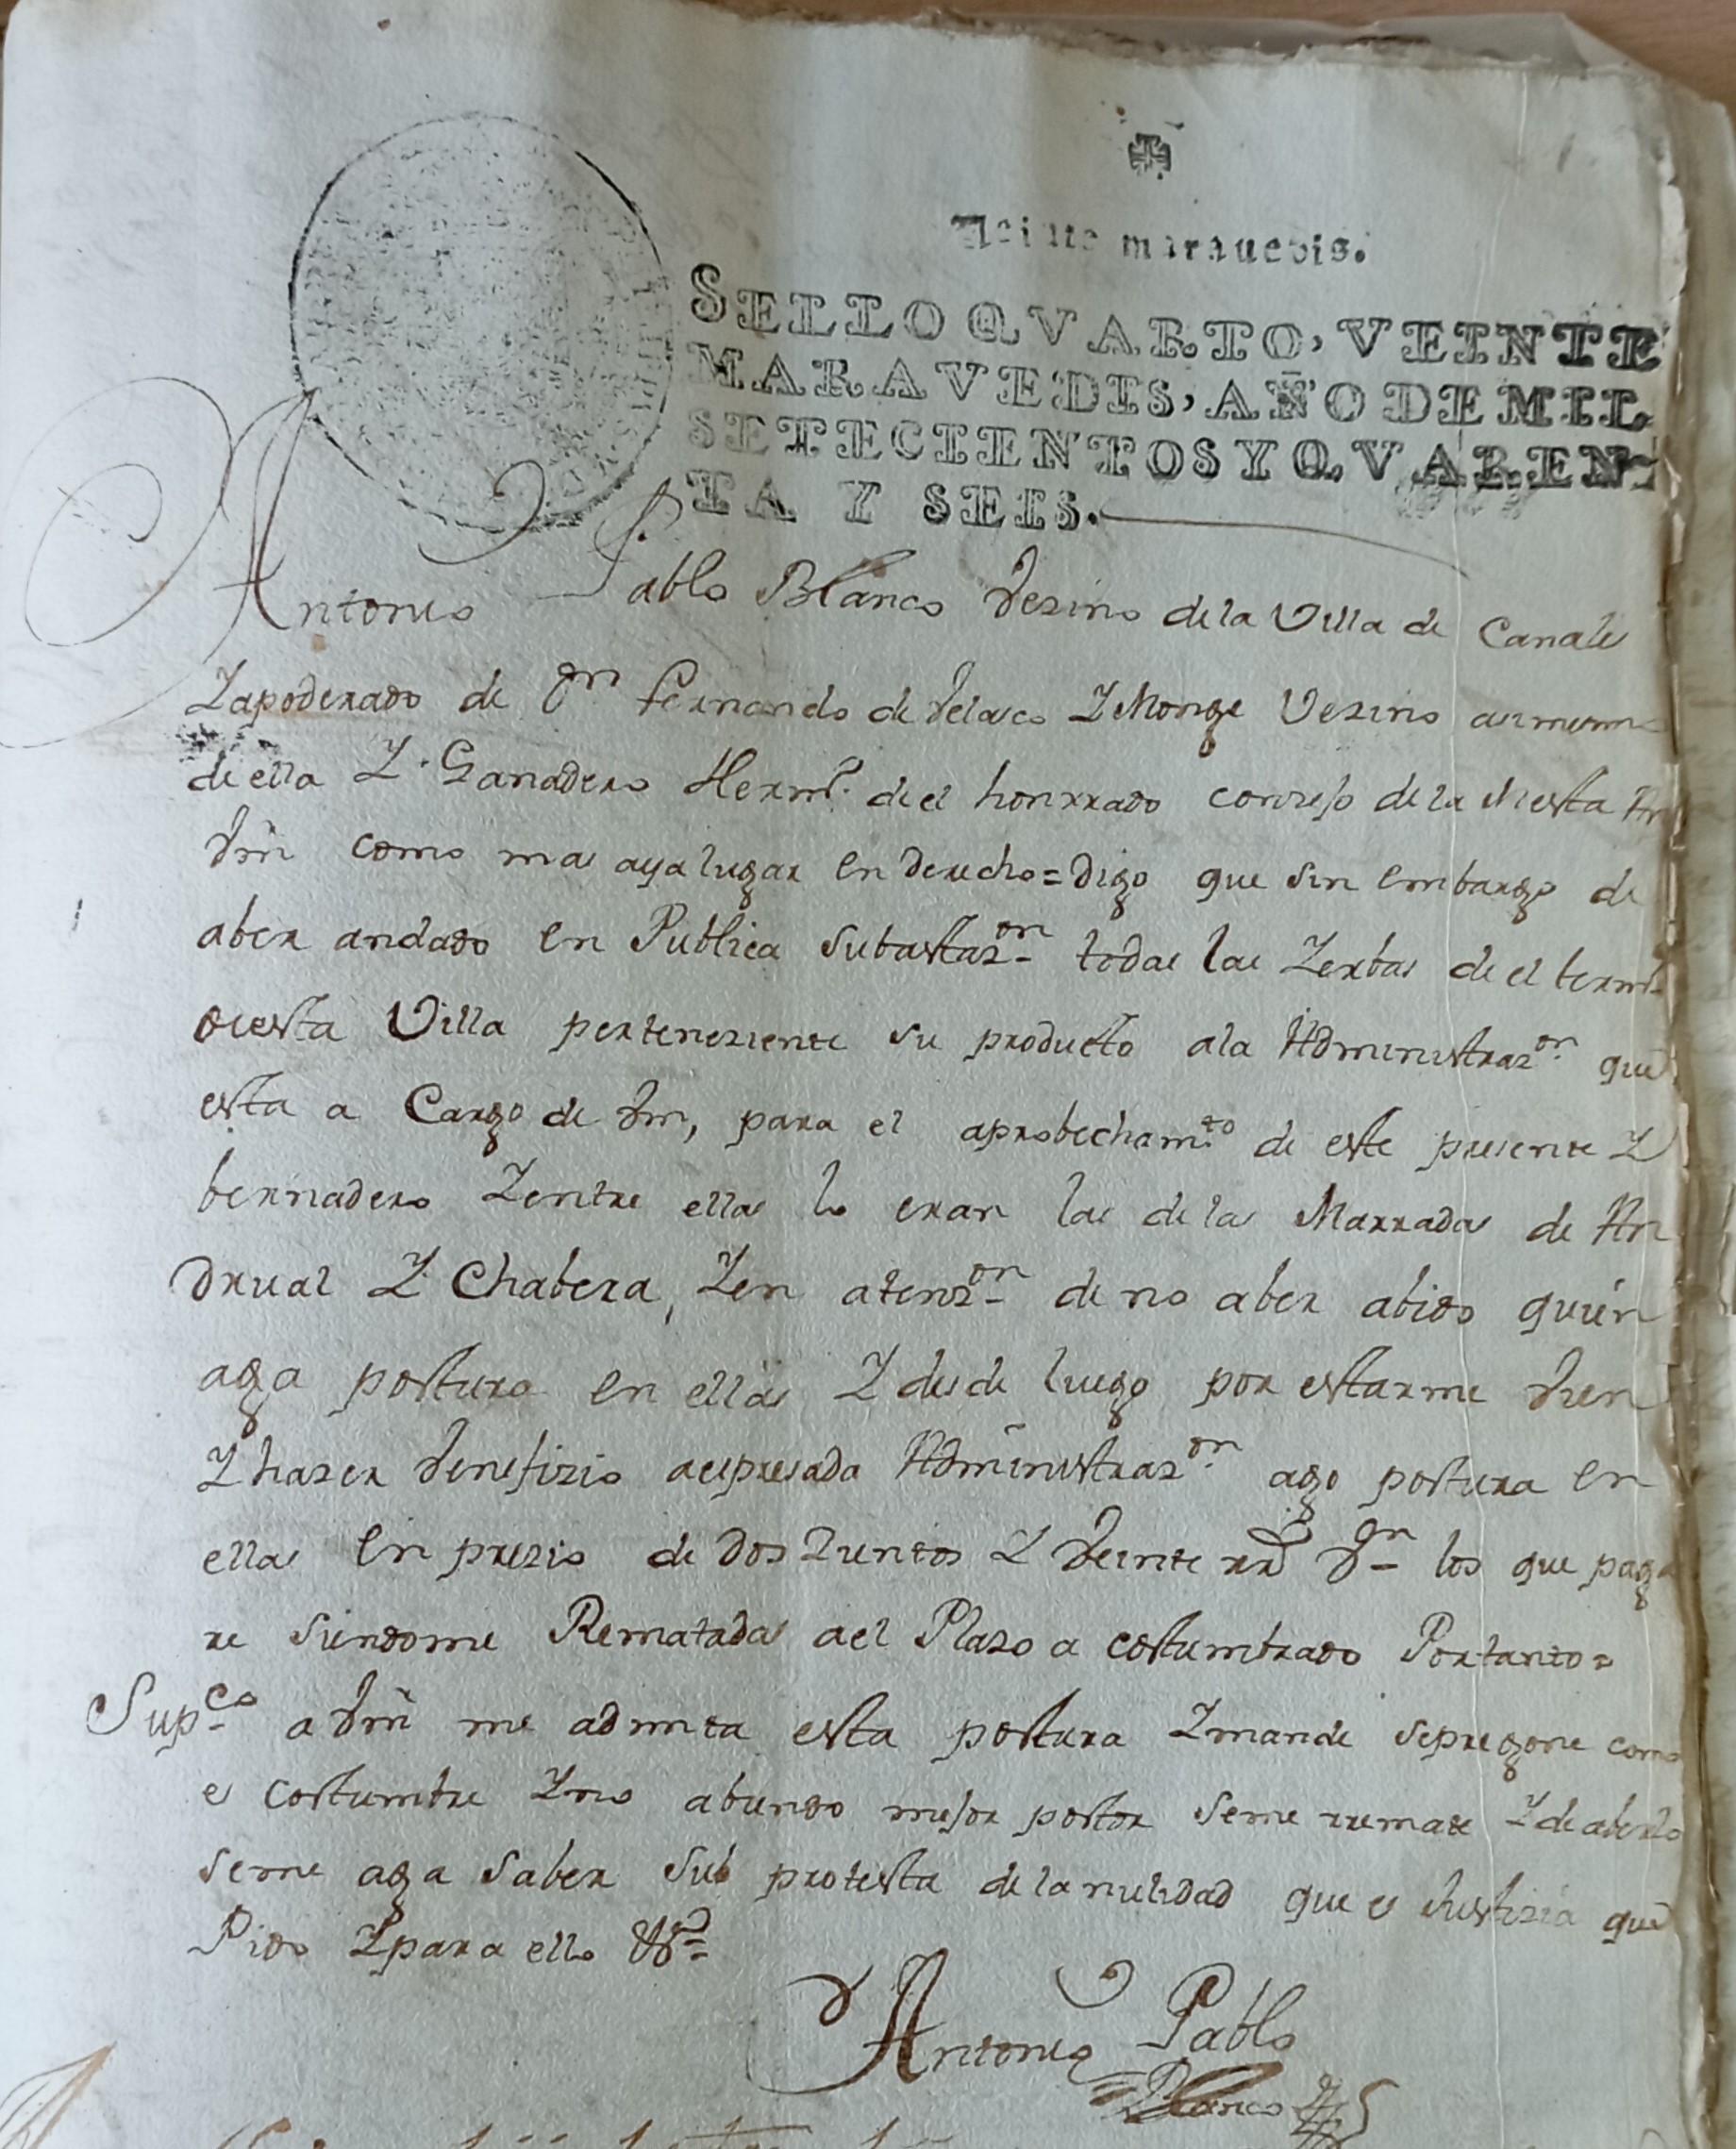 Veinte marauedis.
SELLO QVARTO, VEINTE
MARAVEDIS, AÑO DE MIL
SETECIENTOS Y QVAREN-
TA Y SEIS.
Antonio Pablo Blanco Vezino de la Villa de Canales
Yapoderado de Dn Fernando de Velasco Y Monge Vezino asimismo
de ella Y Ganadero Hermo. de el honrrado conzejo de la Mesta An
Vm como mas aya lugar en derecho = Digo que sin embargo de
aber andado en Publica Subastazon todas las Yerbas de el termo
de esta Villa perteneziente su producto a la Administrazon que
esta a Cargo de Vm, para el aprobechamto de este presente Y
bernadero Yentre ellas lo eran las de las Marradas de An
drual Y Chabera, Yen atenzon de no aber abido quien
aga postura en ellas Y desde luego por estarme vien
Y hazer venefizio aespresada Administrazon ago postura en
ellas en prezio de dos zientos Y veinte rrs Vn los que paga
re siendome Rematadas ael Plazo a costumbrado Portanto =
Supco a Vm me admita esta postura Ymande sepregone como
es costumbre Yno abiendo mejor postor seme rremate Y de aberlo
seme aga saber sub protesta de la nulidad que es Justizia que
Pido Ypara ello &a
Antonio Pablo
Blanco